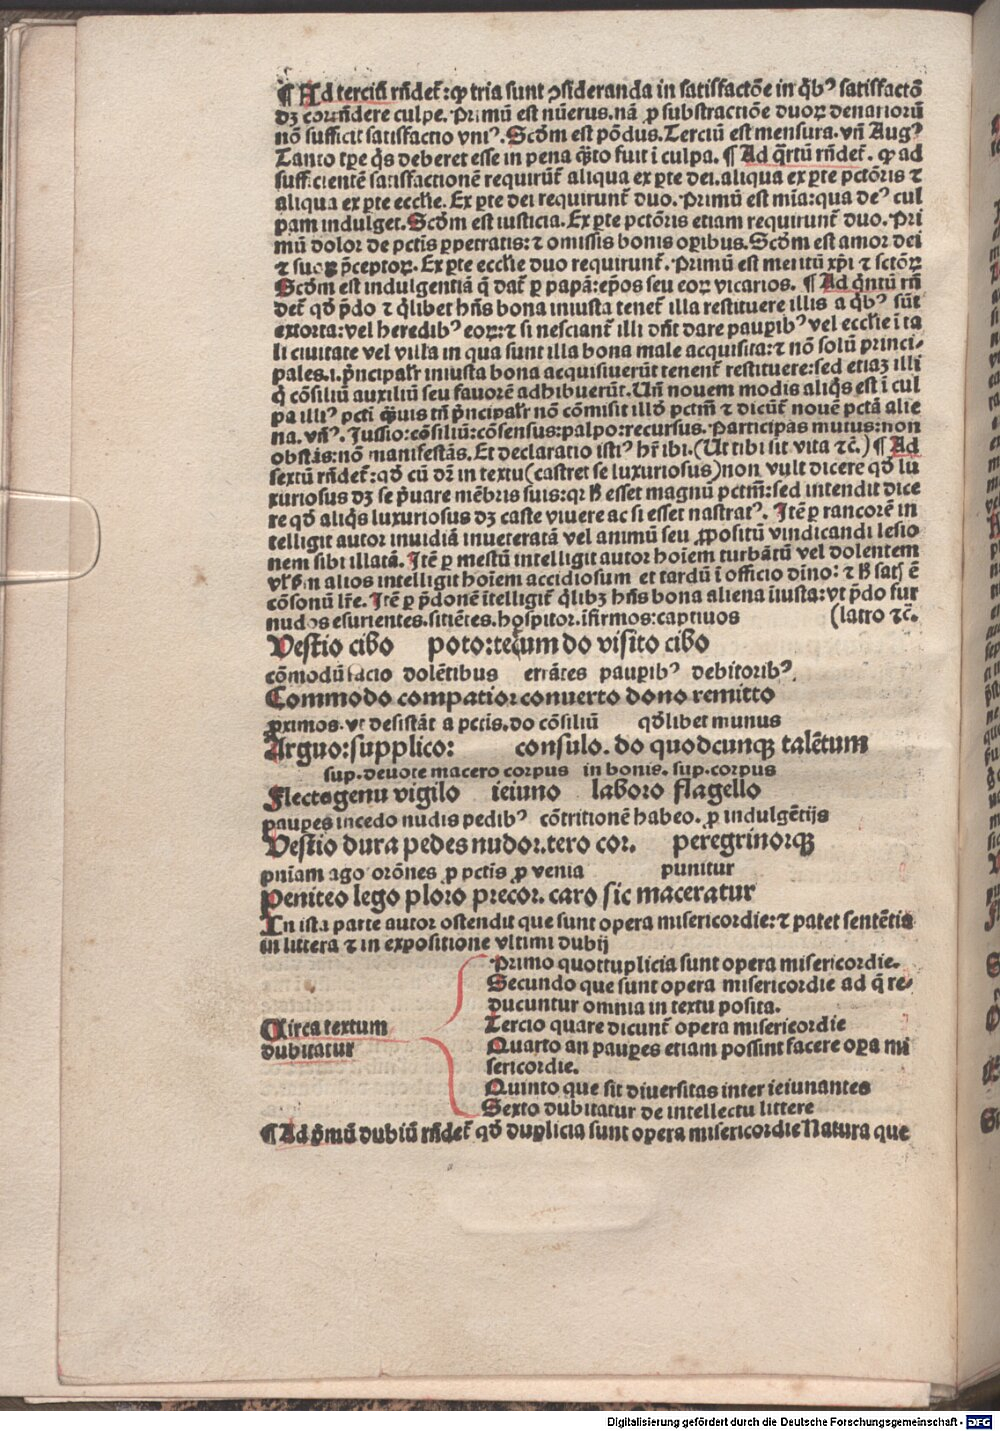 ¶ Ad terciū rñdet᷑: ꝙ tria sunt ↄsideranda in satisfactōe in q̄bꝰ satisfactō
dꝫ correñdere culpe. Primū est nūerus. nā ꝓ substractiōe duoꝝ denariorū
nō sufficit satisfactio vniꝰ. Scđm est pōdus. Terciū est mensura. vñ Augꝰ
Tanto tpe q̄s deberet esse in pena q̄ꝫto fuit ī culpa. ¶ Ad q̄rtū rñdet᷑. ꝙ ad
sufficientē satisfactionē requirūt᷑ aliqua ex ꝑte dei. aliqua ex ꝑte pctōris ⁊
aliqua ex ꝑte ecclīe. Ex ꝑte dei requirunt᷑ duo. Primū est mīa: qua deꝰ cul
pam indulget. Scđm est iusticia. Ex ꝑte pctōris etiam requirunt᷑ duo. Pri
mū dolor de pctīs ꝑpetratis: ⁊ omissis bonis oꝑibus. Scđm est amor dei
⁊ suoꝝ p̄ceptoꝝ. Ex ꝑte ecclīe duo requirunt᷑. Primū est meritū xp̄i ⁊ sctōꝝ
Scđm est indulgentiā q̄ dat᷑ ꝑ papā: ep̄os seu eoꝝ vicarios. ¶ Ad q̄ntū rñ
det᷑ qđ p̄do ⁊ q̄libet hñs bona iniusta tenet᷑ illa restituere illis a q̄bꝰ sūt
extorta: vel heredibꝰ eoꝝ: ⁊ si nesciant᷑ illi dñt dare pauꝑibꝰ vel ecclīe ī ta
li ciuitate vel villa in qua sunt illa bona male acquisita: ⁊ nō solū princi-
pales. i. p̄ncipalr̄ iniusta bona acquisiuerūt tenent᷑ restituere: sed etiaꝫ illi
q̄ cōsiliū auxiliū seu fauorē adhibuerūt. Uñ nouem modis aliq̄s est ī cul
pa illiꝰ pcti q̄ꝫuis tñ p̄ncipalr̄ nō cōmisit illđ pctm̄ ⁊ dicūt᷑ nouē pctā alie
na. vñꝰ. Jussio: cōsiliū: cōsensus: palpo: recursus. Participās mutus: non
obstās: nō manifestās. Et declaratio istiꝰ hr̄ ibi. (Ut tibi sit vita ⁊c̄.) ¶ Ad
sextū rñdet᷑: qđ cū dꝫ in textu (castret se luxuriosus) non vult dicere qđ lu
xuriosus dꝫ se p̄uare mēbris suis: qꝛ h̄ esset magnū pctm̄: sed intendit dice
re qđ aliq̄s luxuriosus dꝫ caste viuere ac si esset nastratꝰ. Jtē ꝑ rancorē in
telligit autor inuidiā inueteratā vel animū seu ꝓpositū vindicandi lesio
nem sibi illatā. Jtē ꝑ mestū intelligit autor hoīem turbātū vel dolentem
vl̄ in alios intelligit hoīem accidiosum et tardū ī officio dīno: ⁊ h̄ satꝭ ē
cōsonū lr̄e. Jtē ꝑ p̄donē ītelligit᷑ q̄libꝫ hñs bona aliena iīusta: vt p̄do fur
nudos esurientes. sitiētes. hospitor. īfirmos: captiuos (latro ⁊c̄.
Vestio cibo poto: tectum do visito cibo
cōmodū facio dolētibus errātes pauꝑibꝰ debitoribꝰ.
Commodo compatior conuerto dono remitto
ꝓximos. vt desistāt a pctis. do cōsiliū qđlibet munus
Arguo: supplico: consulo. do quodcunqꝫ talētum
sup. deuote macero corpus in bonis. sup. corpus
Flecto genu vigilo ieiuno laboro flagello
pauꝑes incedo nudis pedibꝰ cōtritionē habeo. ꝓ indulgētijs
Vestio dura pedes nudor. tero cor. peregrinorqꝫ
pn̄iam ago orōnes ꝓ pctīs ꝓ venia punitur
Peniteo lego ploro precor. caro sic maceratur
In ista parte autor ostendit que sunt opera misericordie: ⁊ patet sentētia
in littera ⁊ in expositione vltimi dubij
Circa textum
dubitatur
Primo quottuplicia sunt opera misericordie.
Secundo que sunt opera misericordie ad q̄ re-
ducuntur omnia in textu posita.
Tercio quare dicunt᷑ opera misericordie
Quarto an pauꝑes etiam possint facere oꝑa mi
sericordie.
Quinto que sit diuersitas inter ieiunantes
Sexto dubitatur de intellectu littere
¶ Ad p̄mū dubiū rñdet᷑ qđ duplicia sunt opera misericordie Natura que
Digitalisierung gefördert durch die Deutsche Forschungsgemeinschaft - DFG